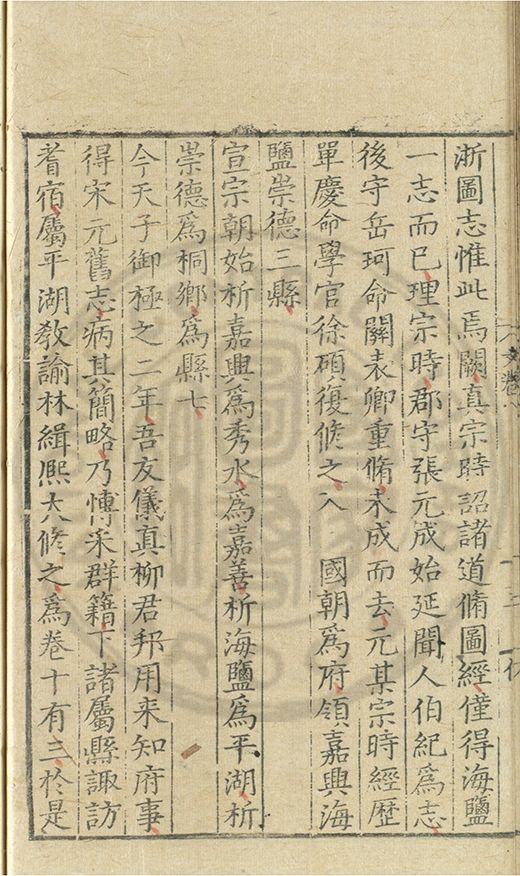 浙圖志惟此焉闕真宗時詔諸道脩圖經僅得海鹽
一志而已理宗時郡守張元成始延聞人伯紀爲志
後守岳珂命關表卿重脩未成而去元某宗時經歴
單慶命學官徐碩復修之入　國朝爲府領嘉興海
鹽崇德三縣
宣宗朝始析嘉興爲秀水爲嘉善析海鹽爲平湖析
崇德爲桐鄉爲縣七
今天子御極之二年吾友儀真柳君邦用来知府事
得宋元舊志病其簡略乃愽采群籍下諸屬縣諏訪
耆宿屬平湖教諭林緝熈大修之爲卷十有三於是